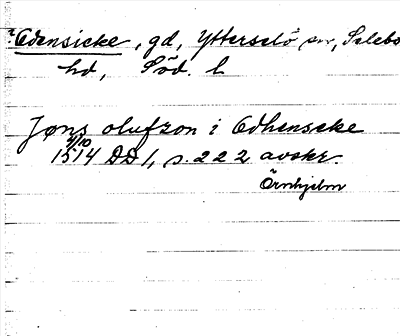 ? Edensicke, gd, Ytterselö sn, Selebo
hd, Söd. l
Jøns olufzon i Edhenseke
9/10
1514 DD 1, s. 222 avskr.
Örnhjelm